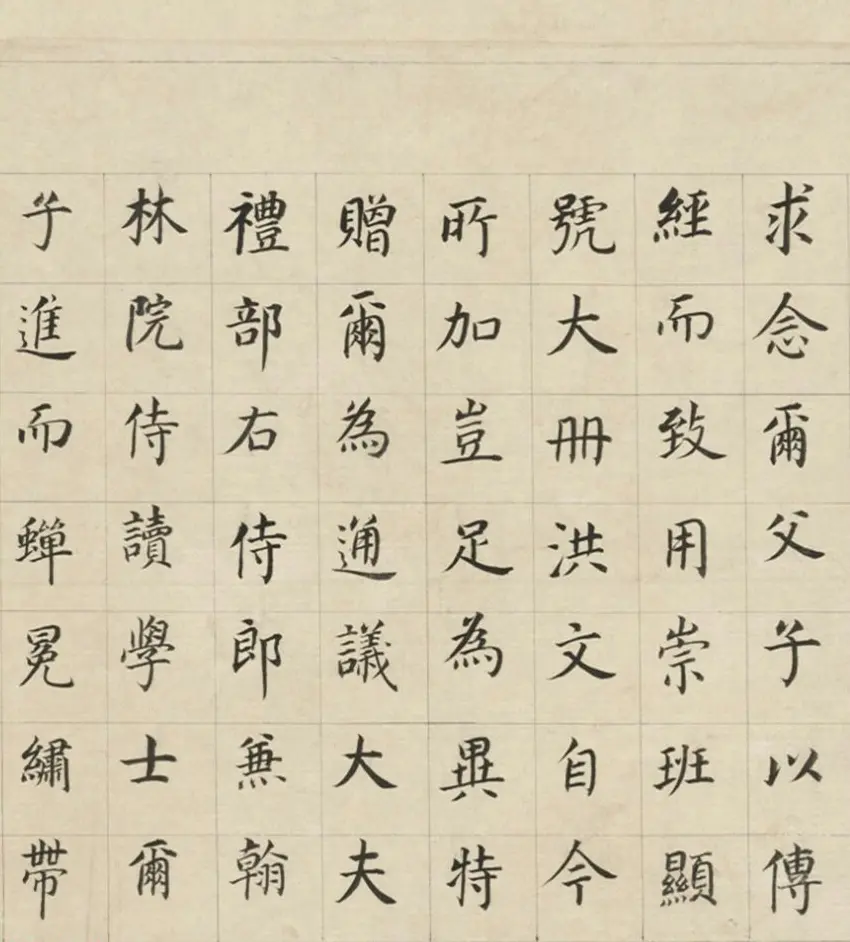 求念爾父子以傳
經而致用崇班顯
號大冊洪文自今
所加豈足為異特
贈爾為通議大夫
禮部右侍郎兼翰
林院侍讀學士爾
子進而蟬冕繡帶